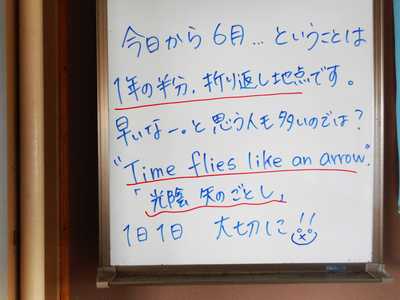 今日から6月…ということは
1年の半分、折り返し地点です。
早いなー。と思う人も多いのでは?
"Time flies like an arrow."
「光陰 矢のごとし」
1日1日 大切に!!